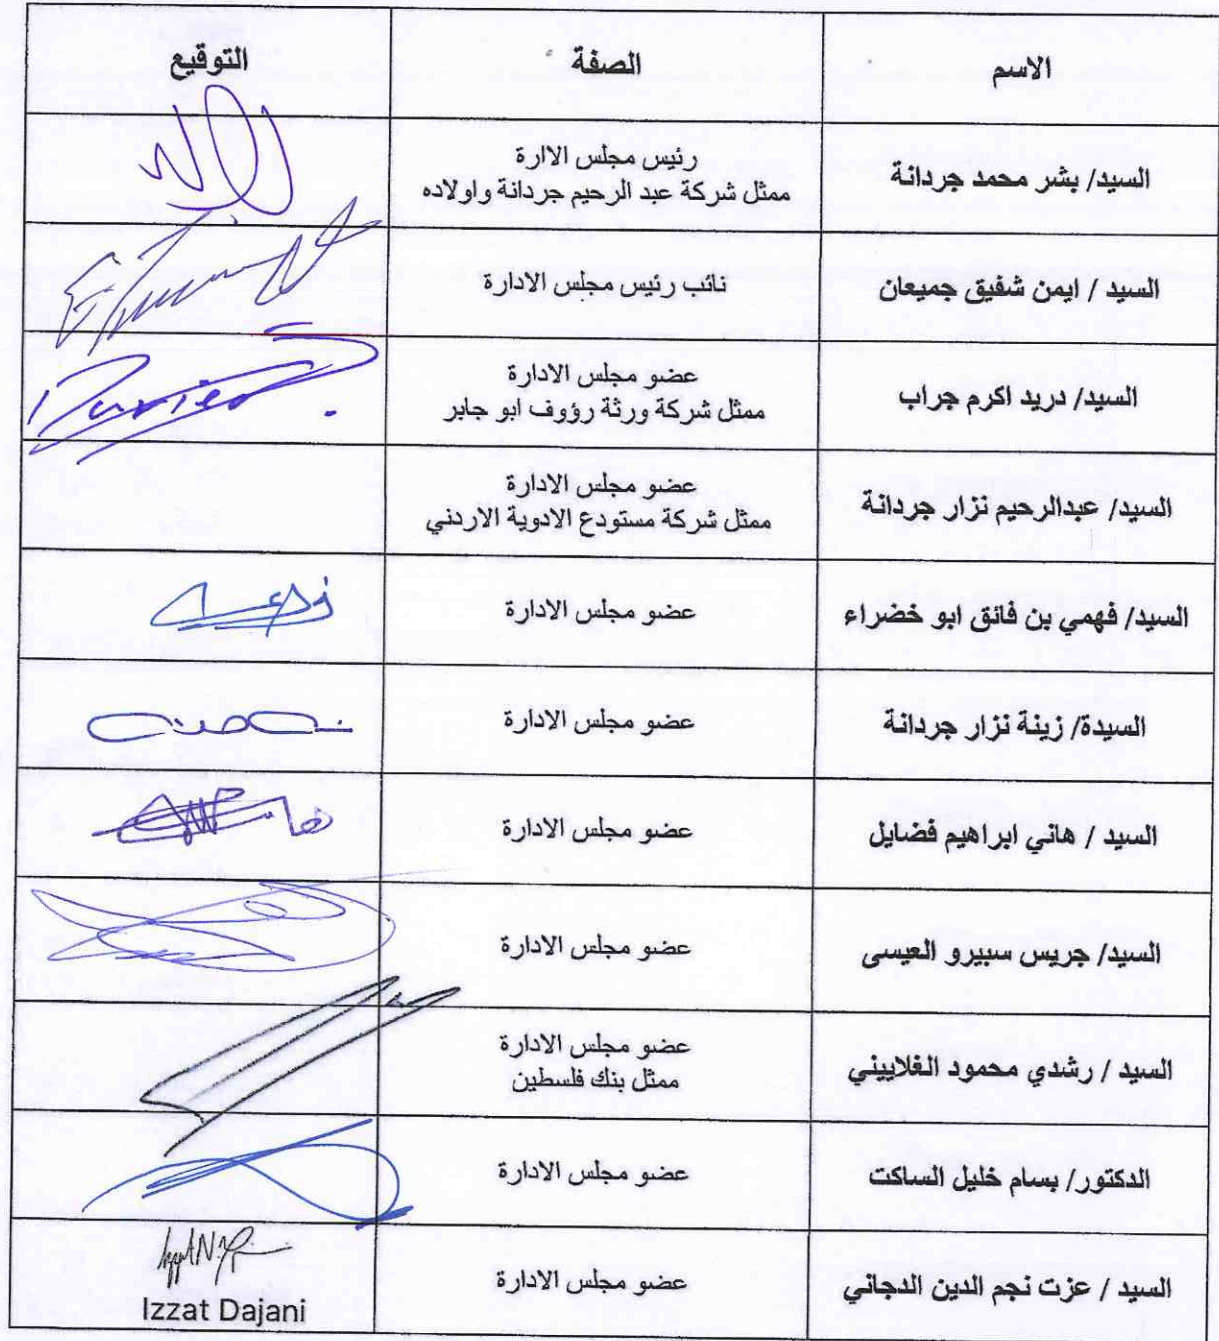 الاسم الصفة التوقيع
السيد/ بشر محمد جردانة
رئيس مجلس الاارة
ممثل شركة عبد الرحيم جردانة واولاده
السيد / ايمن شفيق جميعان
نائب رئيس مجلس الادارة
السيد/ دريد اكرم جراب
عضو مجلس الادارة
ممثل شركة ورثة رؤوف ابو جابر
Duried
السيد/ عبدالرحيم نزار جردانة
عضو مجلس الادارة
ممثل شركة مستودع الادوية الاردني
السيد/ فهمي بن فائق ابو خضراء
عضو مجلس الادارة
السيدة/ زينة نزار جردانة
عضو مجلس الادارة
السيد / هاني ابراهيم فضايل
عضو مجلس الادارة
السيد/ جريس سبيرو العيسى
عضو مجلس الادارة
السيد / رشدي محمود الغلاييني
عضو مجلس الادارة
ممثل بنك فلسطين
الدكتور/ بسام خليل الساكت
عضو مجلس الادارة
السيد / عزت نجم الدين الدجاني
عضو مجلس الادارة
Izzat Dajani